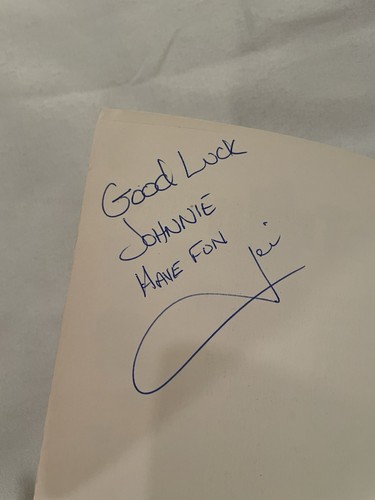 Good Luck
Johnnie
Have Fun